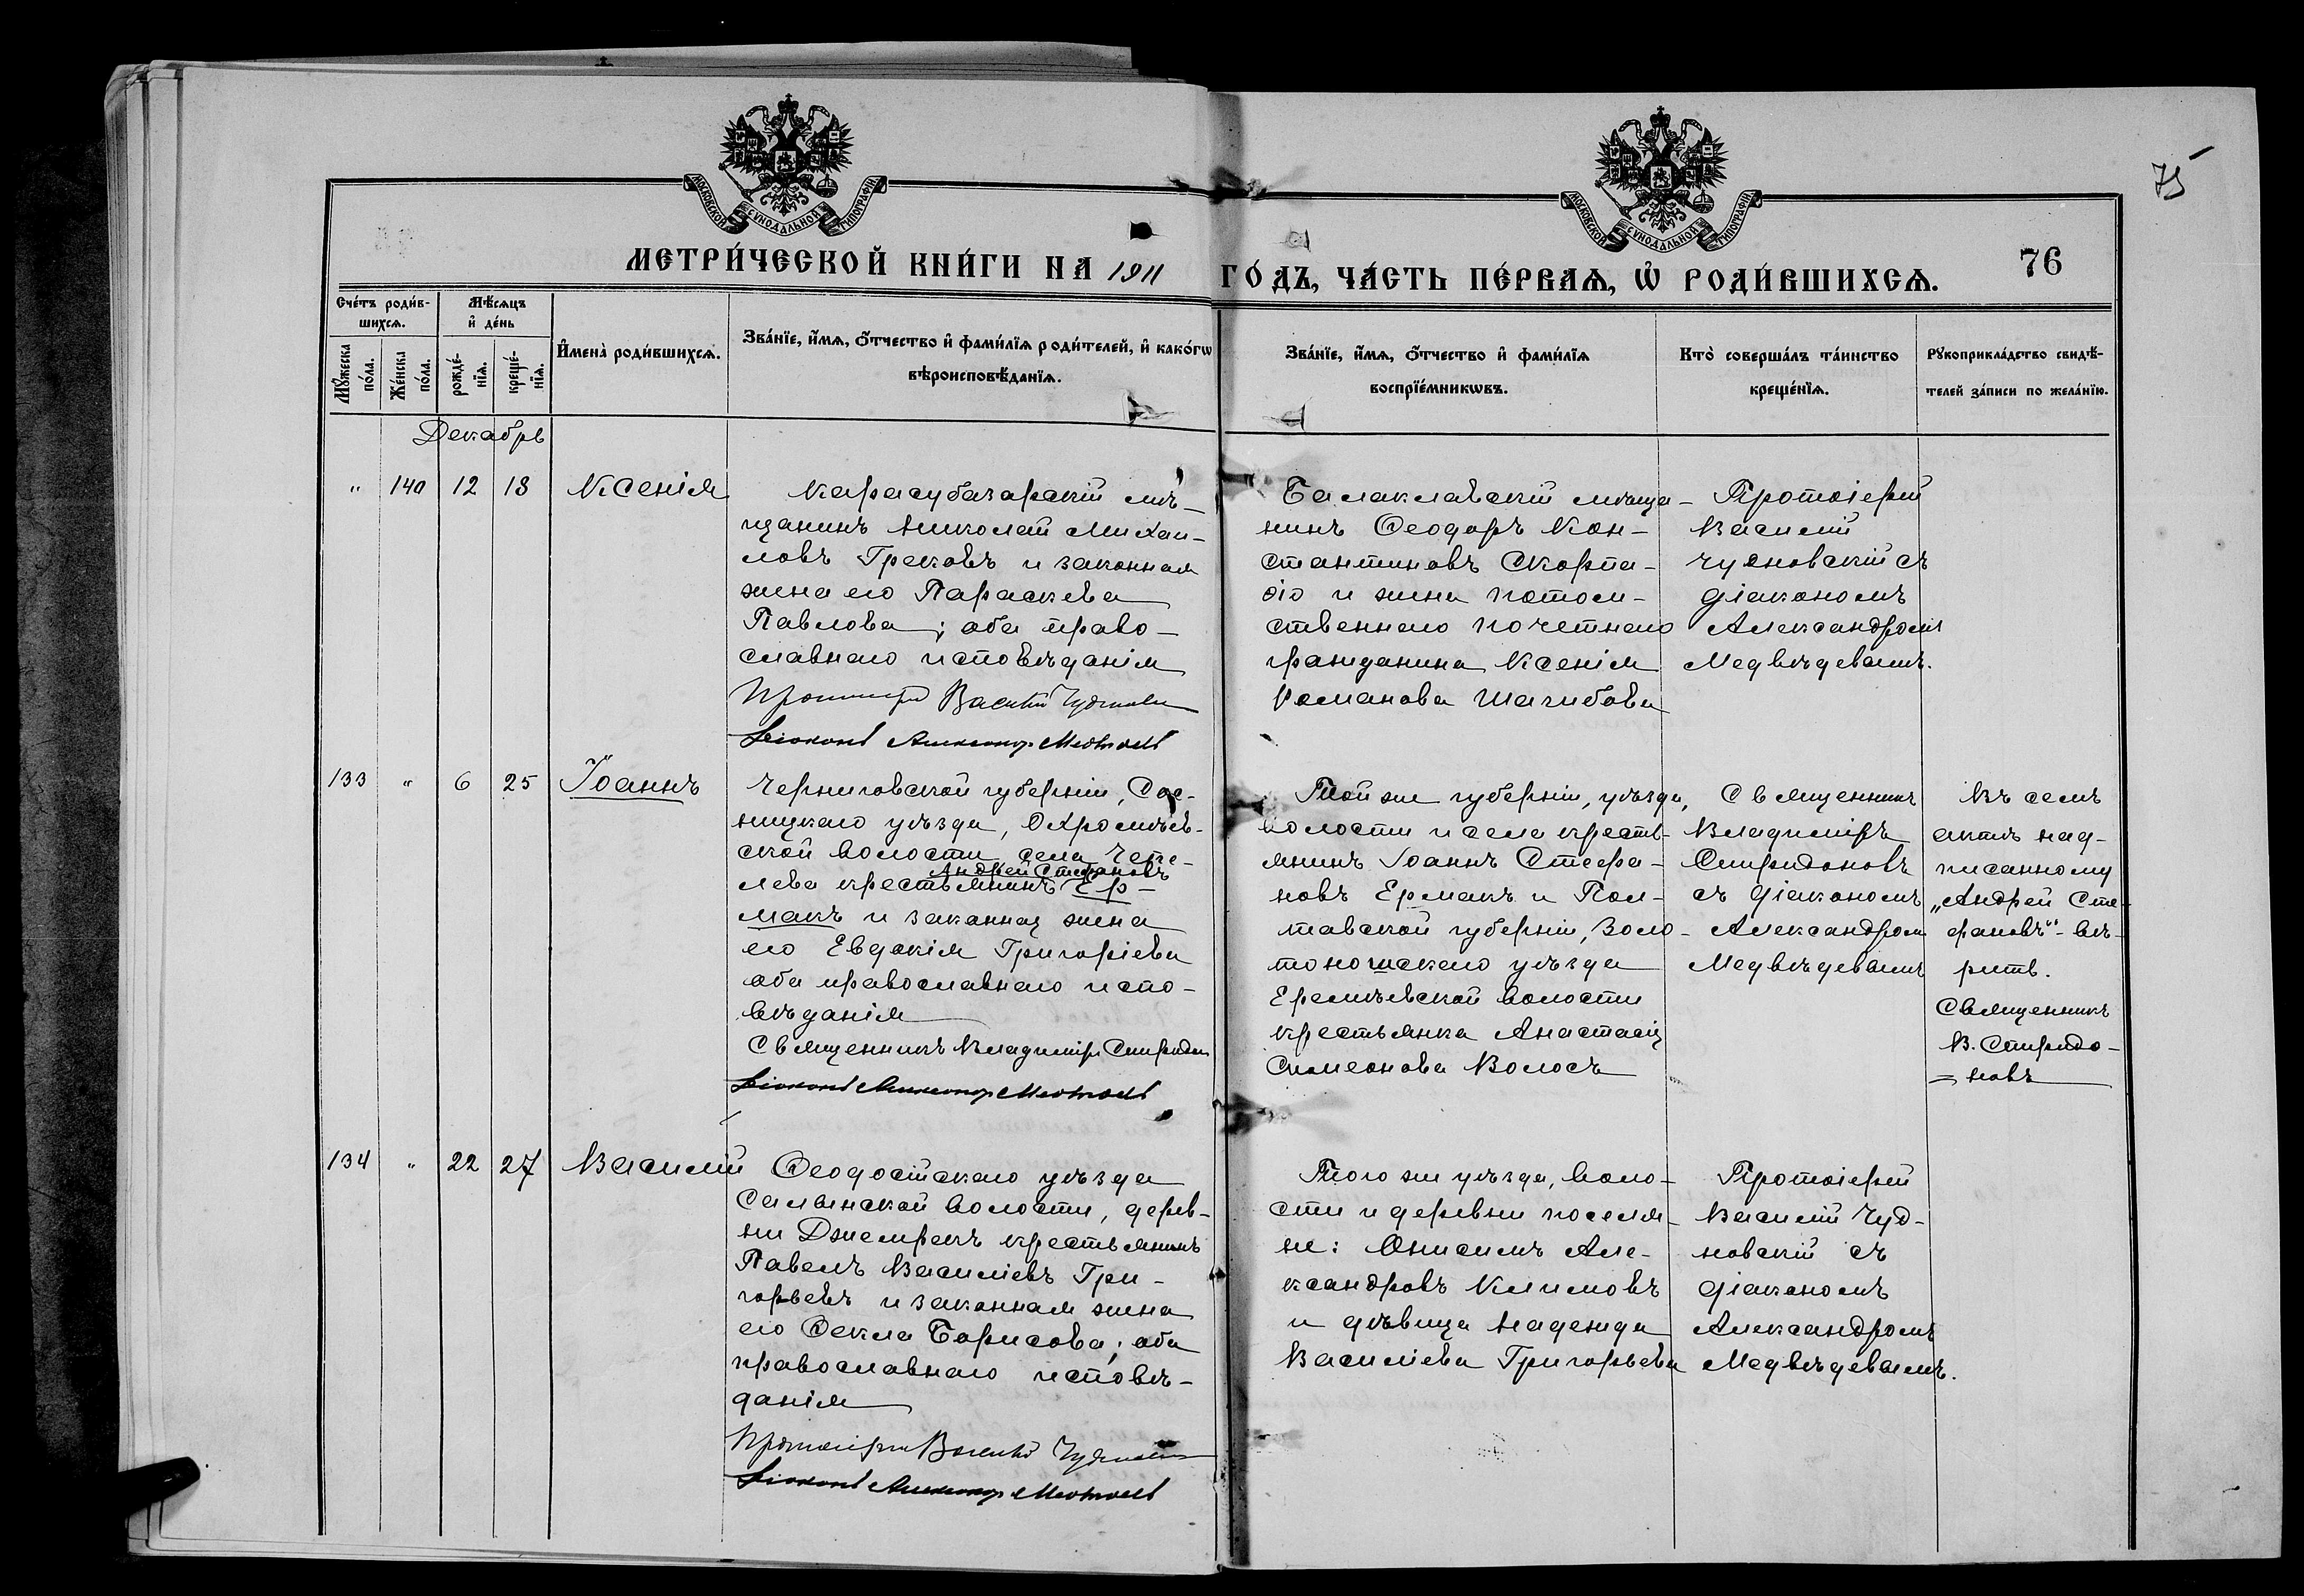 МОСКОВСКОЙ СУНОДАЛЬНОЙ ТИПОГРАФІИ
МОСКОВСКОЙ СУНОДАЛЬНОЙ ТИПОГРАФІИ
75
МЕТРИ́ЧЕСКОЙ КНИ́ГИ НА 1911 ГО́ДЪ, ЧА́СТЬ ПЕ́РВАѦ, Ѡ҆ РОДИ́ВШИХСѦ.
76
Сче́тъ роди́в-
шихсѧ.
Мꙋ́жеска по́ла.
Же́нска по́ла.
Мѣ́сѧцъ
и҆ де́нь
рожде́-
нїѧ.
креще́-
нїѧ.
И҆мена̀ роди́вшихсѧ.
Зва́нїе, и҆́мѧ, ѻ҆́тчество и҆ фами́лїѧ роди́телей, и҆ како́гѡ
вѣроисповѣ́данїѧ.
Зва́нїе, и҆́мѧ, ѻ҆́тчество и҆ фами́лїѧ
воспрїе́мникѡвъ.
Кто̀ соверша́лъ та́инство
креще́нїѧ.
Рꙋкоприкла́дство свидѣ́-
телей за́писи по жела́нїю.
Декабрь
" 140 12 18 Ксенія
Карасубазарскій мѣ-
щанинъ Николай Михаи-
ловъ Грековъ и законная
жена его Параскева
Павлова; оба право-
славнаго исповѣданія
Протоіерей Василій Чудновскій
Діаконъ Александр Медвѣдевъ
Балаклавскій мѣща-
нинъ Ѳеодоръ Кон-
стантиновъ Скорпа-
и жена потом-
ственнаго почетнаго
гражданина Ксенія
Романова
Протоіерей
Василій
Чудновскій съ
діакономъ
Александромъ
Медвѣдевымъ.
133 " 6 25 Іоаннъ
Черниговской губерніи, Сос-
ницкаго уѣзда, Охромѣев-
ской волости села Чепе-
Андрей Стефановъ
лева крестьянинъ Ер-
макъ и законная жена
его Евдокія Григоріева
оба православнаго испо-
вѣданія
Священникъ Владиміръ Спиридон
Діаконъ Александр Медвѣдевъ
Той же губерніи, уѣзда,
волости и села кресть-
янинъ Іоаннъ Стефа-
новъ Ермакъ и Пол-
тавской губерніи, Золо-
тоношскаго уѣзда
Еремѣевской волости
крестьянка Анастасія
Симеонова Волосъ
Священникъ
Владиміръ
Спиридоновъ
съ діакономъ
Александром
Медвѣдевымъ
Въ семъ
актѣ над-
писанному
„Андрей Сте-
фановъ"- вѣ-
рить.
Священникъ
В. Спиридо-
=новъ
134 " 22 27 Василій
Ѳеодосійскаго уѣзда
Салынской волости, дерев-
ни Джемрекъ крестьянинъ
Павелъ Василіевъ Гри-
горьевъ и законная жена
его Ѳекла Борисова; оба
православнаго исповѣ-
данія
Протоіерей Василій Чудновскій
Діаконъ Александр Медвѣдевъ
Того же уѣзда, воло-
сти и деревни поселя-
не: Онисимъ Але-
ксандровъ Климовъ
и дѣвица Надежда
Василіева Григорьева
Протоіерей
Василій Чуд-
новскій съ
діакономъ
Александромъ
Медвѣдевымъ.